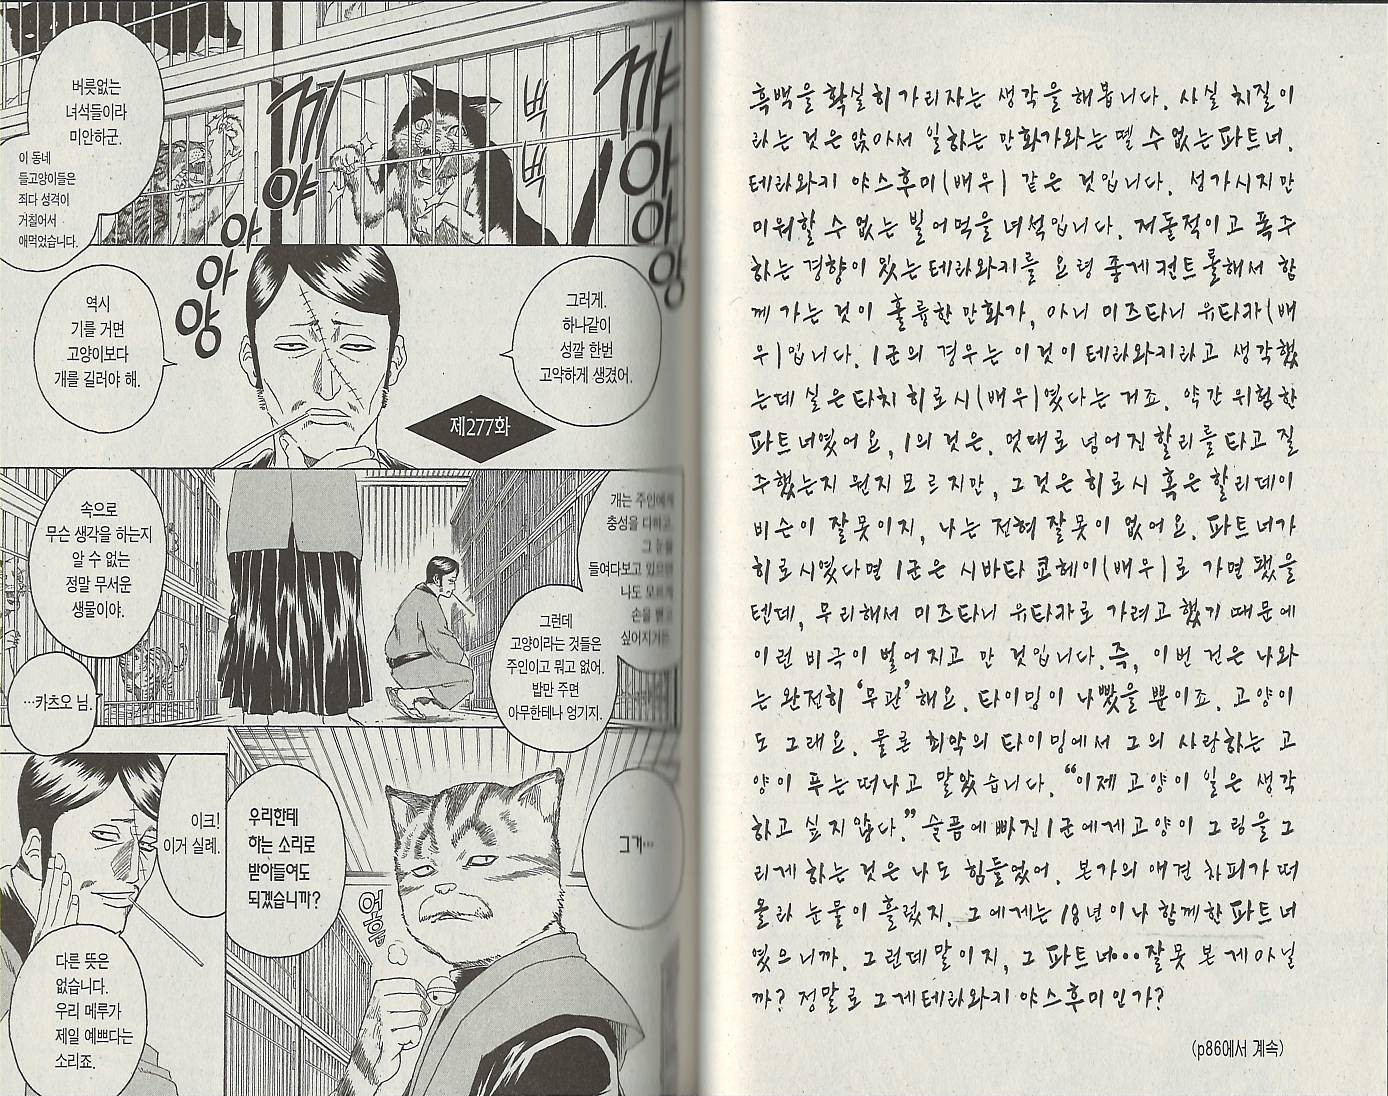 버릇없는
녀석들이라
미안하군.
이 동네
들고양이들은
죄다 성격이
거칠어서
애먹었습니다.
끼
야
아
아
앙
벅
벅
꺄
아
아
앙
역시
기를 거면
고양이보다
개를 길러야 해.
그러게.
하나같이
성깔 한번
고약하게 생겼어.
제277화
개는 주인에게
충성을 다하고,
그 눈을
들여다보고 있으면
나도 모르게
손을 뻗고
싶어지거든.
그런데
고양이라는 것들은
주인이고 뭐고 없어.
밥만 주면
아무한테나 엉기지.
속으로
무슨 생각을 하는지
알 수 없는
정말 무서운
생물이야.
…카츠오 님.
그거…
우리한테
하는 소리로
받아들여도
되겠습니까?
이크!
이거 실례.
다른 뜻은
없습니다.
우리 메루가
제일 예쁘다는
소리죠.
흑백을 확실히 가리자는 생각을 해봅니다. 사실 치질이
라는 것은 앉아서 일하는 만화가와는 뗄 수 없는 파트너.
테라와키 야스후미(배우) 같은 것입니다. 성가시지만
미워할 수 없는 빌어먹을 녀석입니다. 저돌적이고 폭주
하는 경향이 있는 테라와키를 요령 좋게 컨트롤해서 함
께 가는 것이 훌륭한 만화가, 아니 미즈타니 유타카(배
우)입니다. I군의 경우는 이것이 테라와키라고 생각했
는데 실은 타치 히로시(배우)였다는 거죠. 약간 위험한
파트너였어요, I의 것은. 멋대로 넘어진 할리를 타고 질
주했는지 뭔지 모르지만, 그것은 히로시 혹은 할리데이
비슨이 잘못이지, 나는 전혀 잘못이 없어요. 파트너가
히로시였다면 I군은 시바타 쿄헤이(배우)로 가면 됐을
텐데, 무리해서 미즈타니 유타카로 가려고 했기 때문에
이런 비극이 벌어지고 만 것입니다. 즉, 이번 건은 나와
는 완전히 '무관'해요. 타이밍이 나빴을 뿐이죠. 고양이
도 그래요. 물론 최악의 타이밍에서 그의 사랑하는 고
양이 푸는 떠나고 말았습니다. "이제 고양이 일은 생각
하고 싶지 않다." 슬픔에 빠진 I군에게 고양이 그림을 그
리게 하는 것은 나도 힘들었어. 본가의 애견 차피가 떠
올라 눈물이 흘렀지. 그에게는 18년이나 함께한 파트너
였으니까. 그런데 말이지, 그 파트너…잘못 본 게 아닐
까? 정말로 그게 테라와키 야스후미인가?
(p86에서 계속)